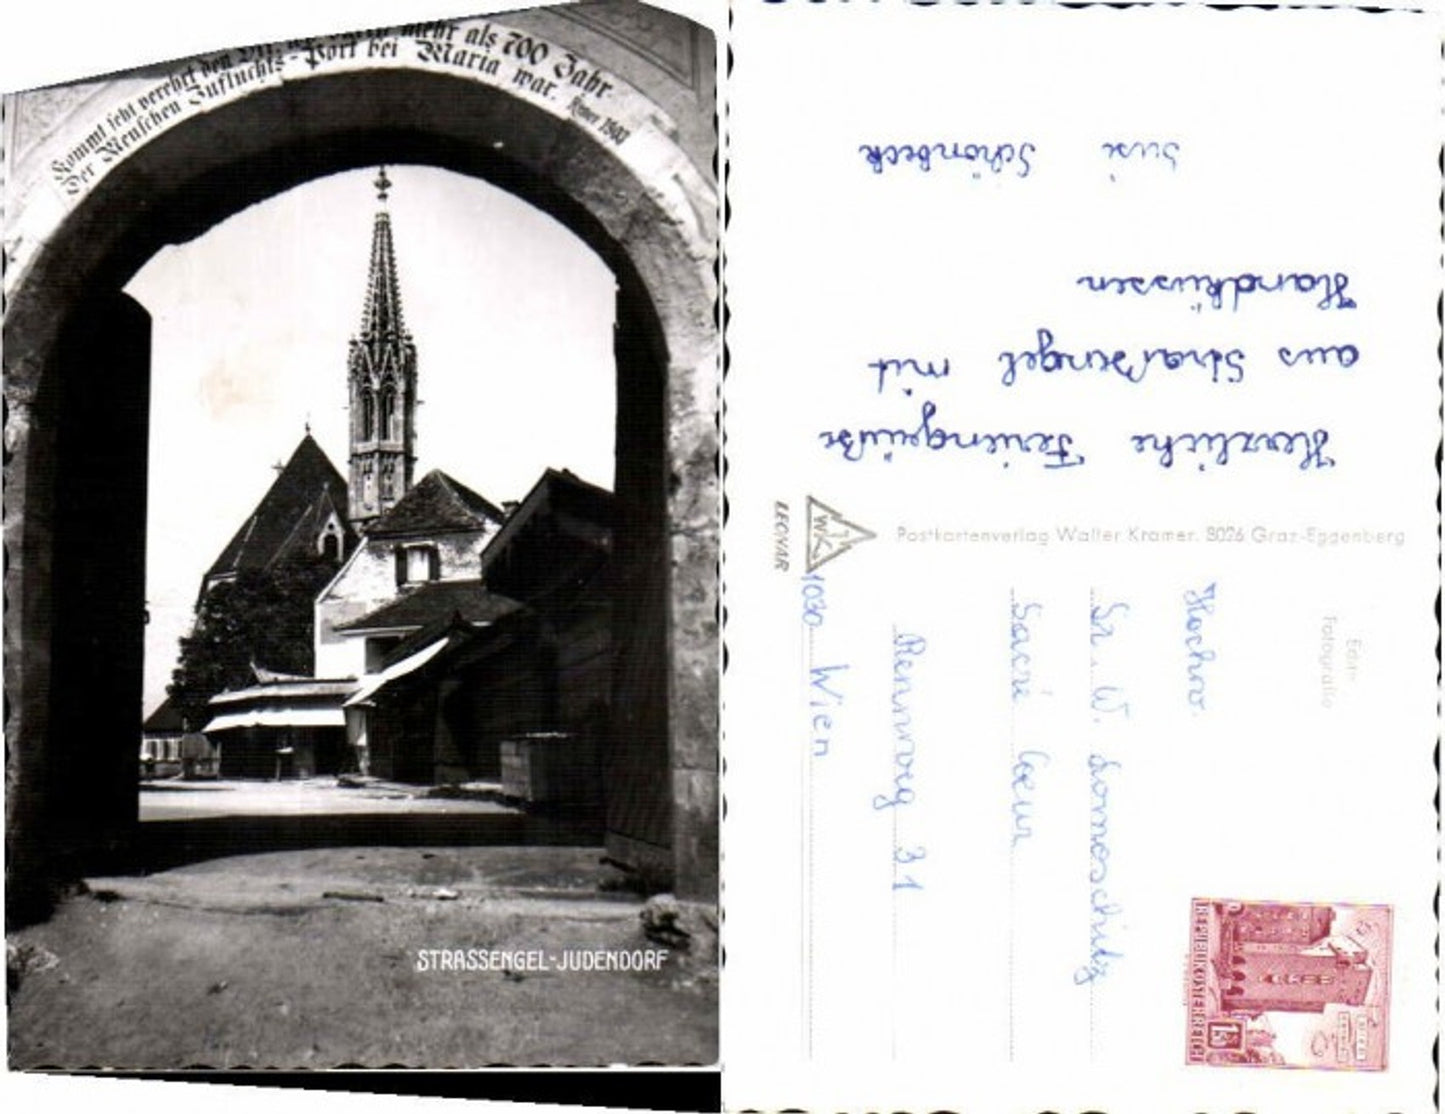 Kommt seht verehrt den mehr als 700 Jahr
Der Menschen Zufluchts-Port bei Maria war.
STRASSENGEL-JUDENDORF
Herzliche Feriengrüße
aus Straßengel mit
Handküssen
Susi Schönbeck
LEONAR
WK
Postkartenverlag Walter Kramer, 8026 Graz-Eggenberg
Echte
Fotografie
Hochw.
Sr. W. Domoschitz
Sacré Coeur
Rennweg 31
1030 Wien
REPUBLIK ÖSTERREICH